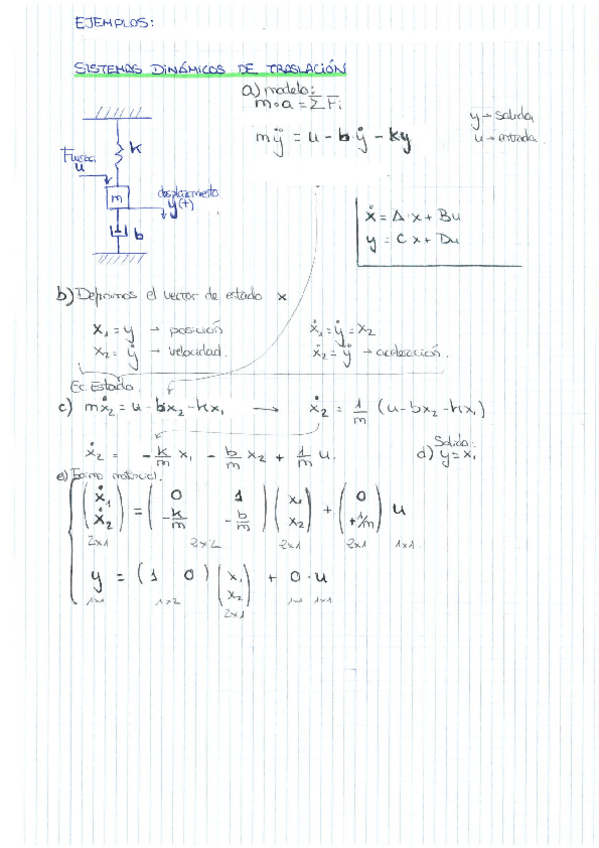 EJEMPLOS:
SISTEMAS DINÁMICOS DE TRASLACIÓN
a) modelo:
m∘a = ΣFi
mÿ = u - bẏ - ky
y → salida
u → entrada
k
Fuerza
u
m
desplazamiento
y(t)
b
ẋ = A·x + Bu
y = Cx + Du
b) Definimos el vector de estado x
x₁ = y → posición
ẋ₁ = ẏ = x₂
x₂ = ẏ → velocidad.
ẋ₂ = ÿ → aceleración.
Ec. Estado.
c) mẋ₂ = u - bx₂ - kx₁ → ẋ₂ = 1/m (u - bx₂ - kx₁)
ẋ₂ = - k/m x₁ - b/m x₂ + 1/m u.
Salida:
d) y = x₁
e) Forma matricial.
(ẋ₁ ẋ₂) = (0 1 -k/m -b/m) (x₁ x₂) + (0 +1/m) u
2x1 2x2 2x1 2x1 1x1.
y = (1 0) (x₁ x₂) + 0·u
1x1 1x2 2x1 1x1 1x1